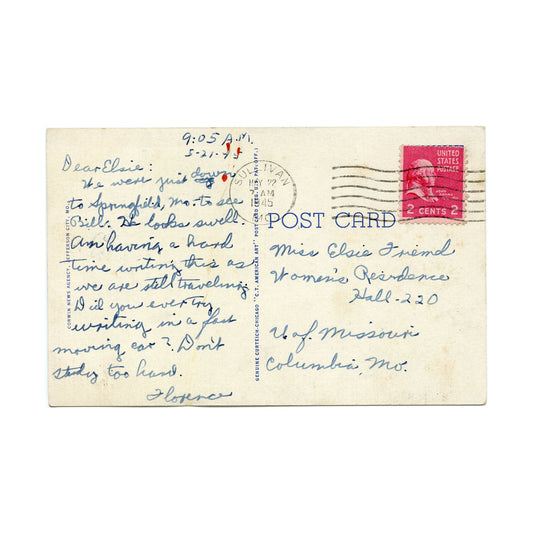 9:05 A.M.
5-21-45
Dear Elsie:
We were just down
to Springfield, Mo. to see
Bill. He looks swell.
Am having a hard
time writing this as
we are still traveling.
Did you ever try
writing in a fast
moving car? Don't
study too hard.
Florence
CORWIN NEWS AGENCY, JEFFERSON CITY, MO.
GENUINE CURTEICH-CHICAGO "C.T. AMERICAN ART" POST CARD (REG. U.S. PAT. OFF.)
SULLIVAN
MAY 22
7 AM
1945
UNITED
STATES
POSTAGE
2 CENTS 2
POST CARD
Miss Elsie Friemd
Women's Residence
Hall-220
U of Missouri
Columbia, Mo.